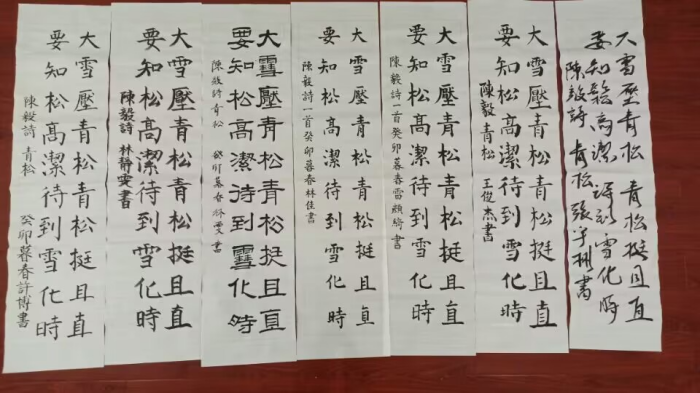 大雪壓青松青松挺且直
要知松高潔待到雪化時
陳毅詩青松張宇書
大雪壓青松青松挺且直
要知松高潔待到雪化時
陳毅青松王俊杰書
大雪壓青松青松挺且直
要知松高潔待到雪化時
陳毅詩一首癸卯暮春雷顏綺書
大雪壓青松青松挺且直
要知松高潔待到雪化時
陳毅詩一首癸卯暮春林佳書
大雪壓青松青松挺且直
要知松高潔待到雪化時
陳毅詩青松癸卯暮春雯書
大雪壓青松青松挺且直
要知松高潔待到雪化時
陳毅詩林靜雯書
大雪壓青松青松挺且直
要知松高潔待到雪化時
陳毅詩青松癸卯暮春許博書